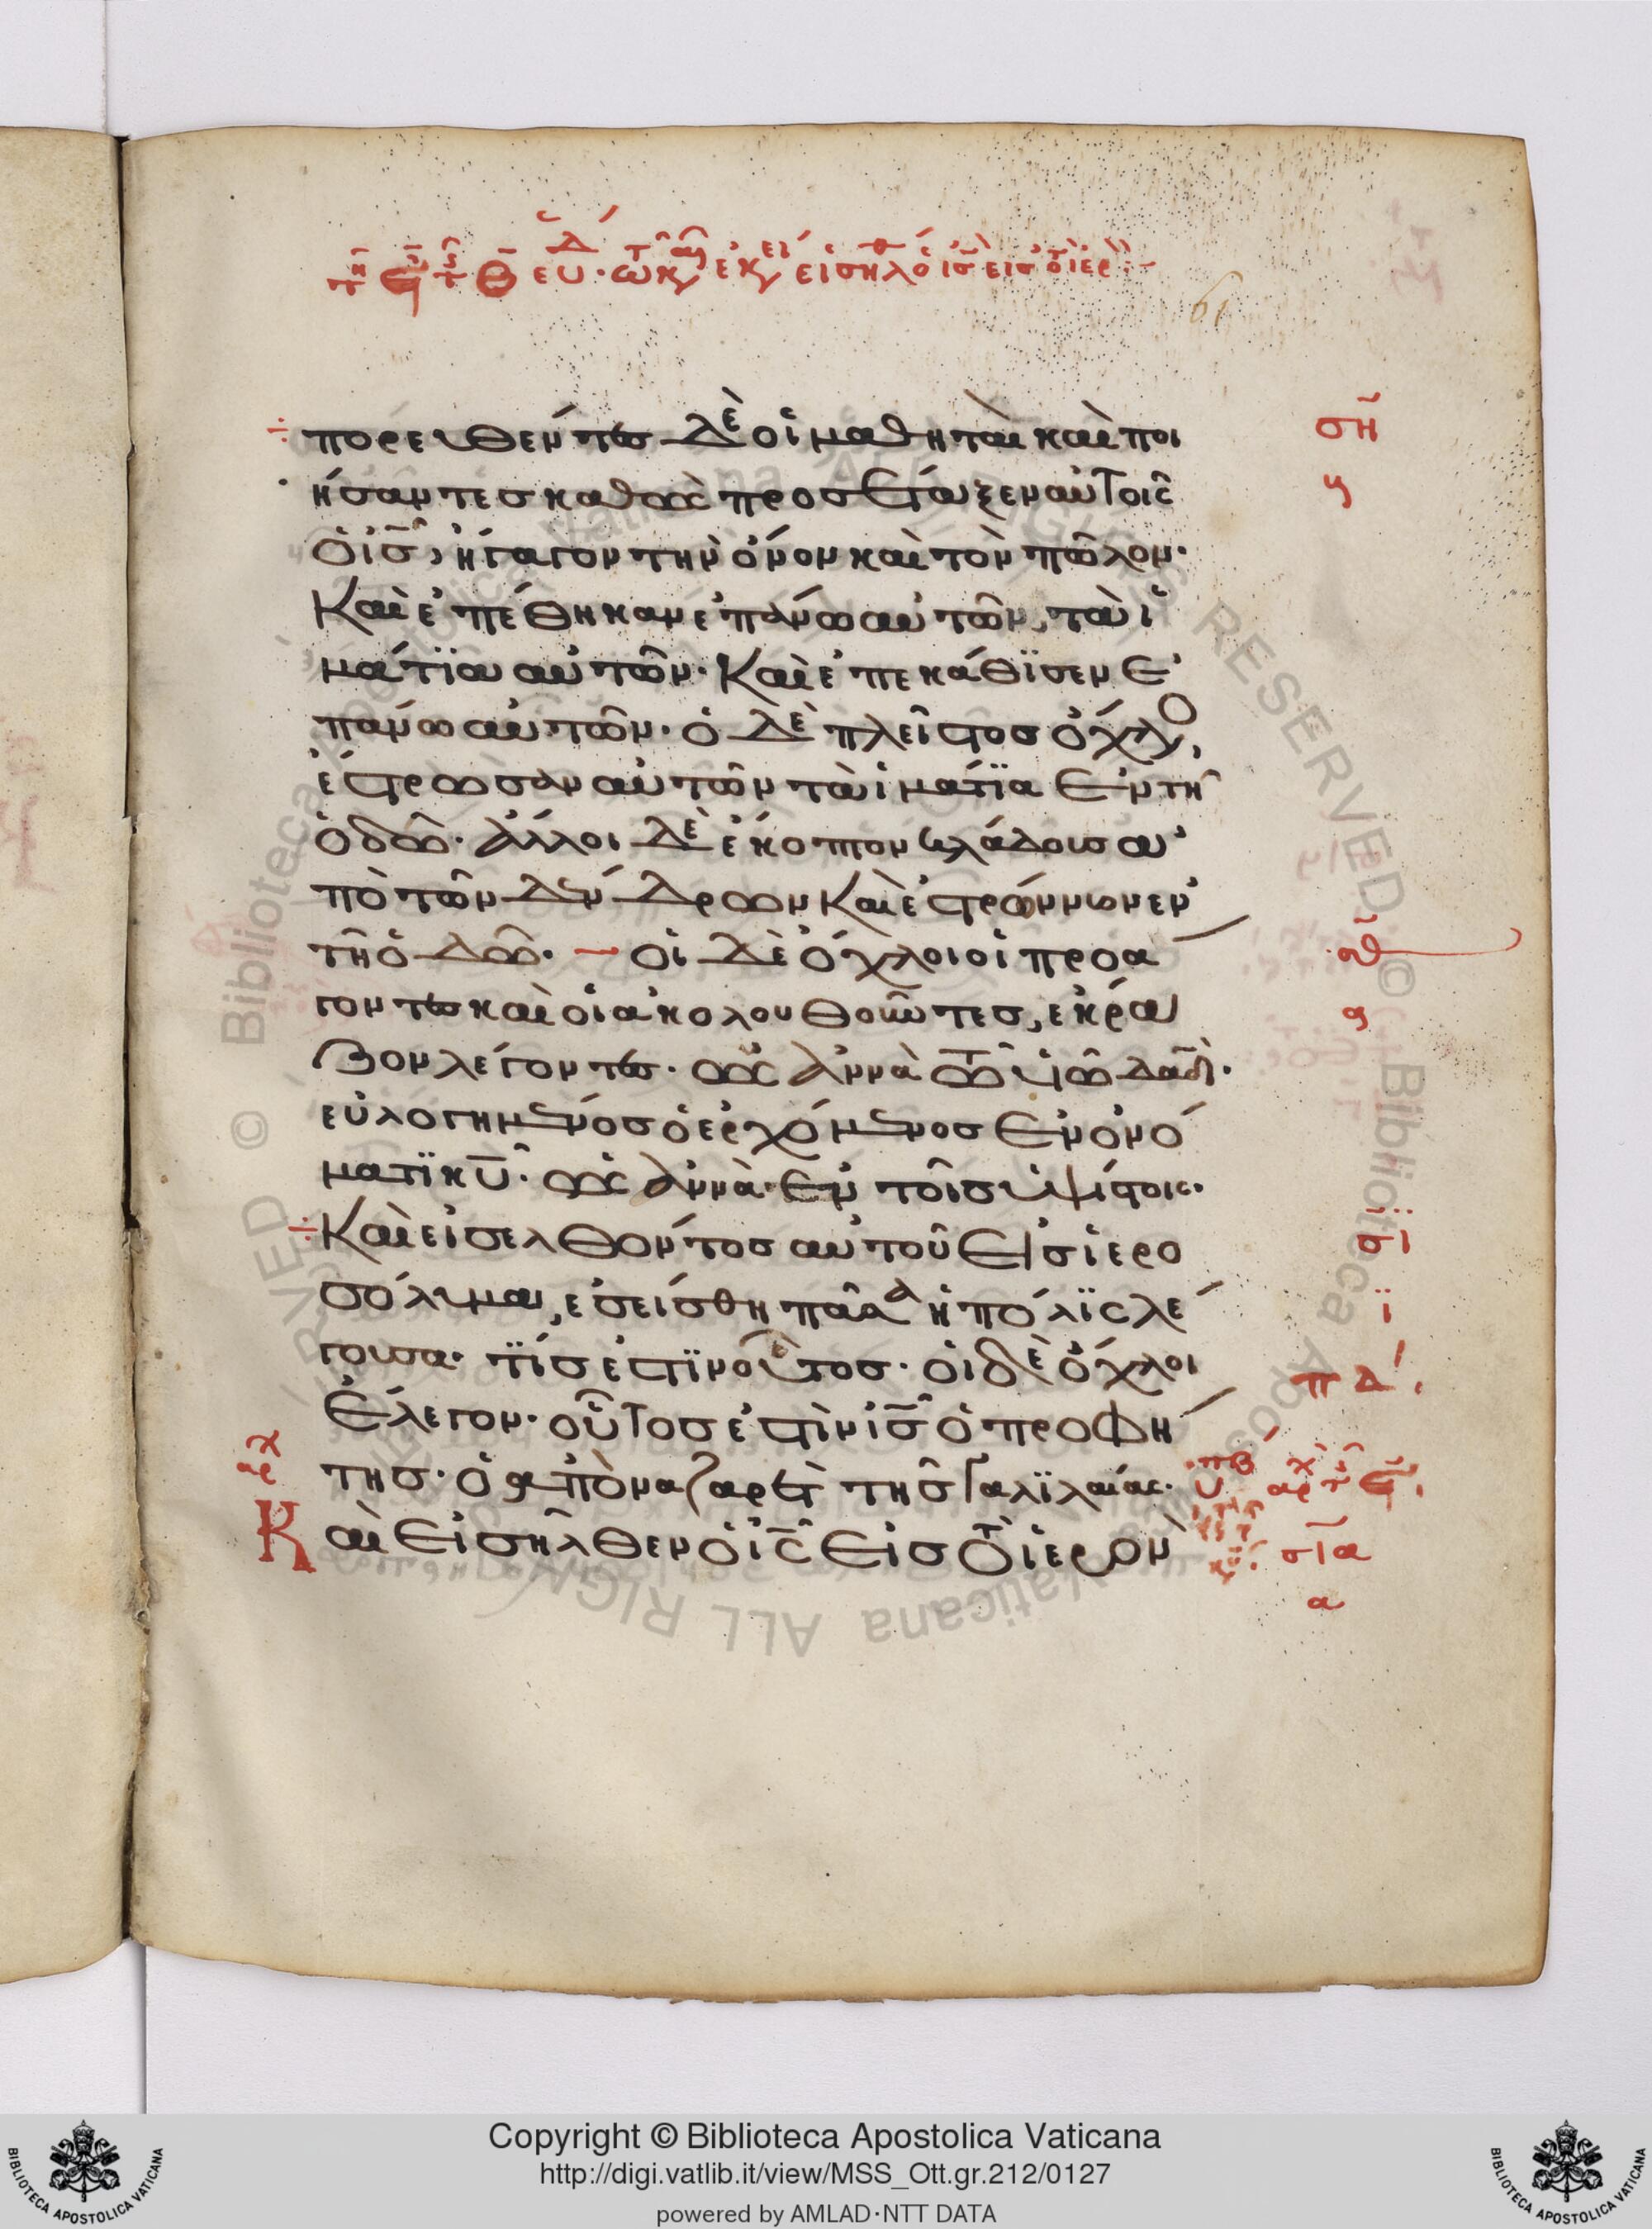 πορευθέντες δὲ οἱ μαθηταὶ καὶ ποι
ήσαντες καθὼς προσέταξεν αὐτοῖς
ὁ ἰς̅, ἤγαγον τὴν ὄνον καὶ τὸν πῶλον·
Καὶ ἐπέθηκαν ἐπάνω αὐτῶν, τὰ ἱ
μάτϊα αὐτῶν· Καὶ ἐπεκάθϊσεν ἐ
πάνω αὐτῶν· ὁ δὲ πλεῖστος ὄχλο,
ἔστρωσαν αὐτῶν τὰ ἱμάτϊα ἐν τῆ
ὁδῶ· ἄλλοι δὲ ἔκοπτον κλάδους ἀ
πὸ τῶν δένδρων Καὶ ἐστρώννυον ἐν
τῆ ὁδῶ· οἱ δὲ ὄχλοι οἱ προά
γοντες καὶ οἱ ἀκολουθοῦντες, ἔκρα
ζον λέγοντες· ὡς ἀννὰ τῶ υἱῶ δαδ̅·
εὐλογημένος ὁ ἐρχόμενος ἐν ὀνό
ματϊ κυ̅· ὡς ἀννὰ· ἐν τοῖς ὑψίστοις·
Καὶ εἰσελθόντος αὐτοῦ εἰς ἱερο
σόλυμα, ἐσείσθη πᾶσα ἡ πόλϊς λέ
γουσα· τΐς ἐστϊν οὗτος· οἱ δὲ ὄχλοι
ἔλεγον· οὗτος ἐστὶν ἰς̅ ὁ προφή
της· ὁ ἀπὸ ναζαρὲτ τῆς Γαλϊλαίας·
Καὶ εἰσῆλθεν ὁ ἰς̅ εἰς τὸ ἱερὸν
ση
ς
σθ
α
σι
ϊ
πδ
σια
α
Copyright © Biblioteca Apostolica Vaticana
http://digi.vatlib.it/view/MSS_Ott.gr.212/0127
powered by AMLAD·NTT DATA
BIBLIOTECA APOSTOLICA VATICANA
BIBLIOTECA APOSTOLICA VATICANA